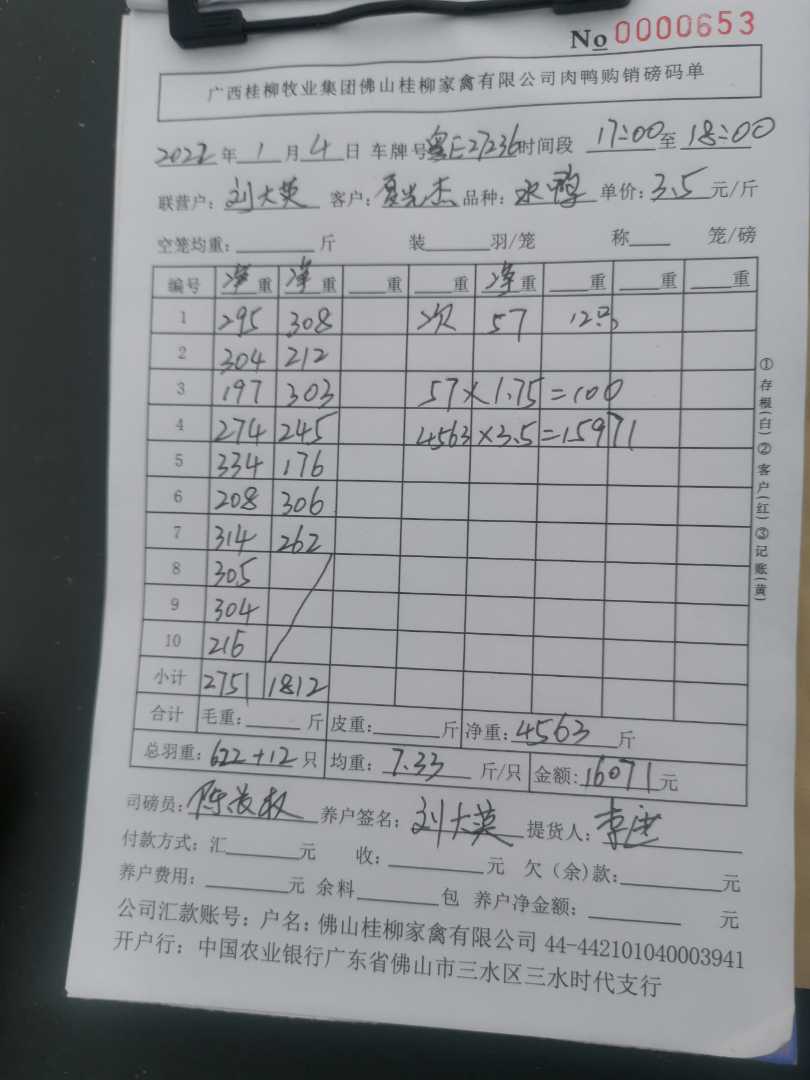 No 0000653
广西桂柳牧业集团佛山桂柳家禽有限公司肉鸭购销磅码单
2022 年 1 月 4 日 车牌号 粤E27236 时间段 17:00 至 18:00
联营户: 刘大英 客户: 夏光杰 品种: 水鸭 单价: 3.5 元/斤
空笼均重: 斤 装 羽/笼 称 笼/磅
编号 净重 净重 重 重 净重 重 重 重
1 295 308 次 57 12只
2 304 212
3 197 303 57×1.75=100
4 274 245 4563×3.5=15971
5 334 176
6 208 306
7 314 262
8 305
9 304
10 216
小计 2751 1812
合计 毛重: 斤 皮重: 斤 净重: 4563 斤
总羽重: 622+12 只 均重: 7.33 斤/只 金额: 16071 元
司磅员: 陈 权 养户签名: 刘大英 提货人: 李
付款方式: 汇 元 收: 元 欠(余)款: 元
养户费用: 元 余料 包 养户净金额: 元
公司汇款账号: 户名: 佛山桂柳家禽有限公司 44-442101040003941
开户行: 中国农业银行广东省佛山市三水区三水时代支行
①存根(白)②客户(红)③记账(黄)